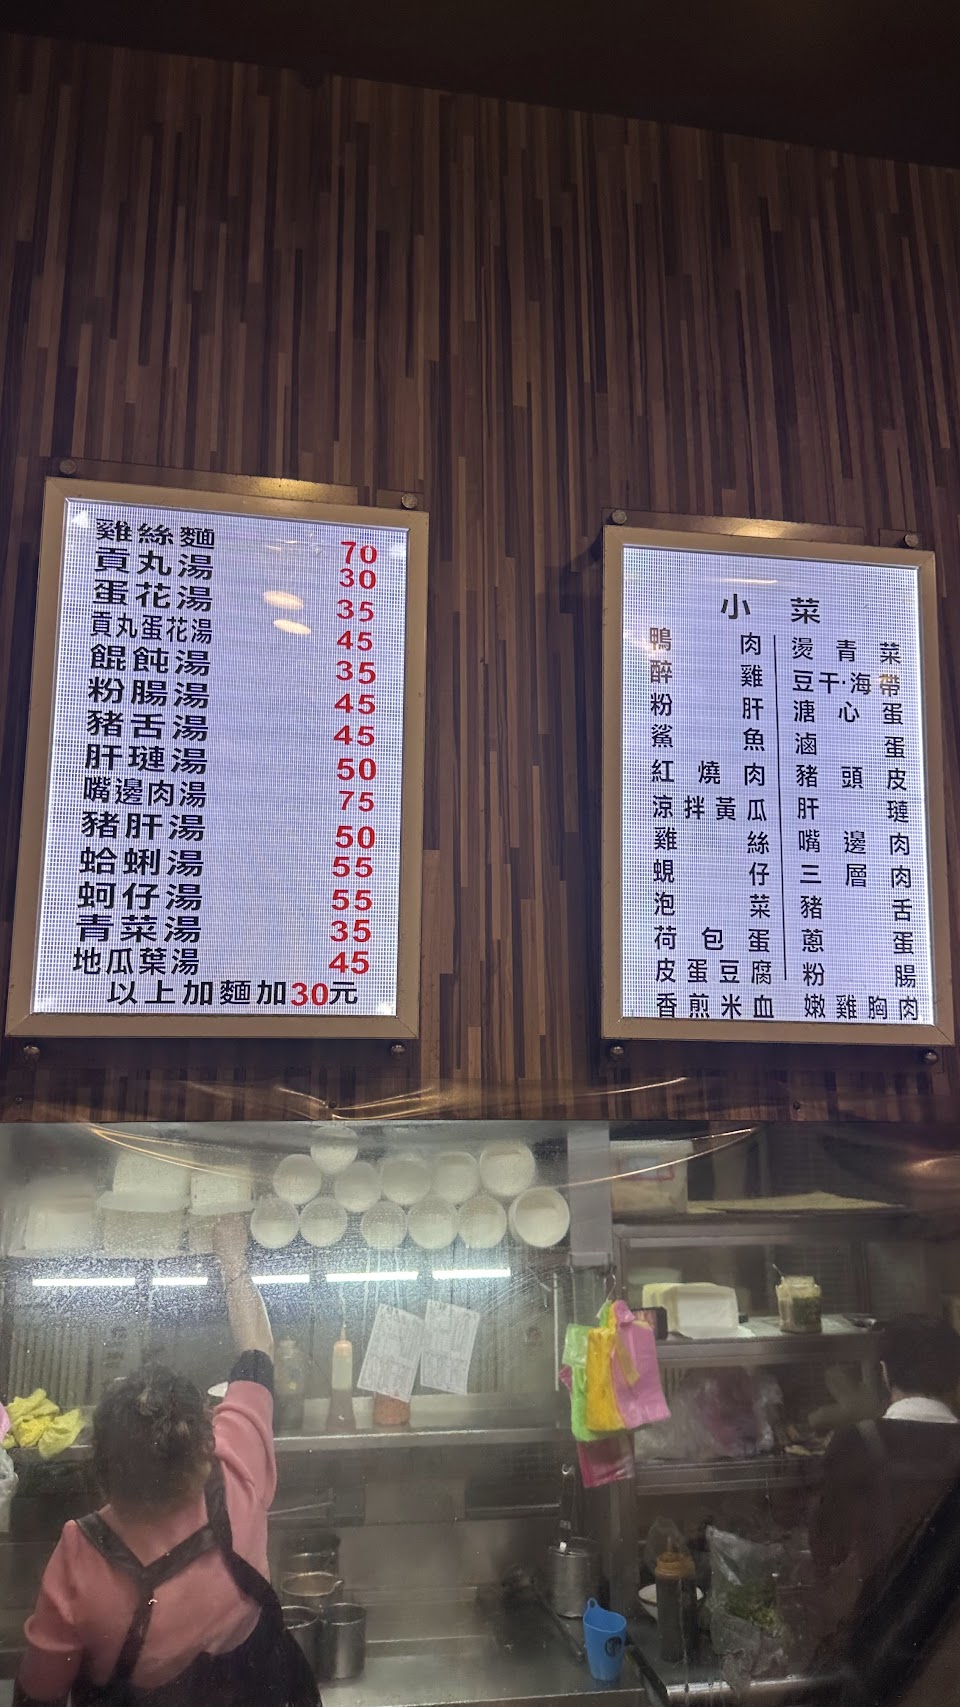 雞絲麵 70
貢丸湯 30
蛋花湯 35
貢丸蛋花湯 45
餛飩湯 35
粉腸湯 45
豬舌湯 45
肝瑓湯 50
嘴邊肉湯 75
豬肝湯 50
蛤蜊湯 55
蚵仔湯 55
青菜湯 35
地瓜葉湯 45
以上加麵加30元
小菜
鴨肉
醉雞
粉肝
鯊魚
紅燒肉
涼拌黃瓜
雞絲
蜆仔
泡菜
荷包蛋
皮蛋豆腐
香煎米血
燙青菜
豆干·海帶
溏心蛋
滷蛋
豬頭皮
肝瑓
嘴邊肉
三層肉
豬舌
蔥蛋
粉腸
嫩雞胸肉